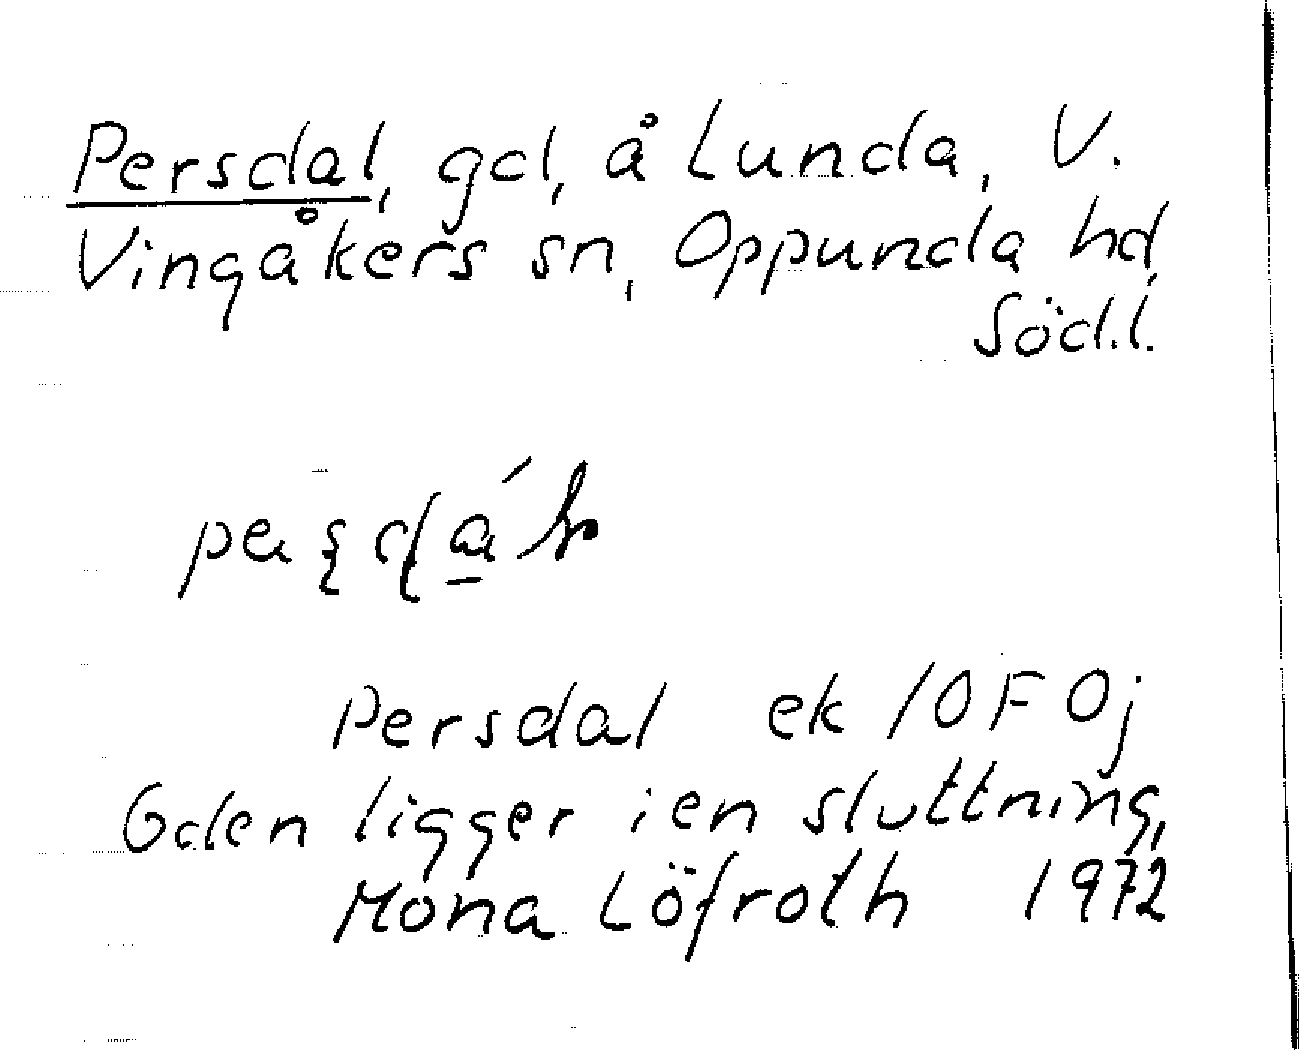 Persdal, gd, å Lunda, V.
Vingåkers sn, Oppunda hd,
Söd.l.
Persdal ek 10F 0j
Gden ligger i en sluttning,
Mona Löfroth 1972